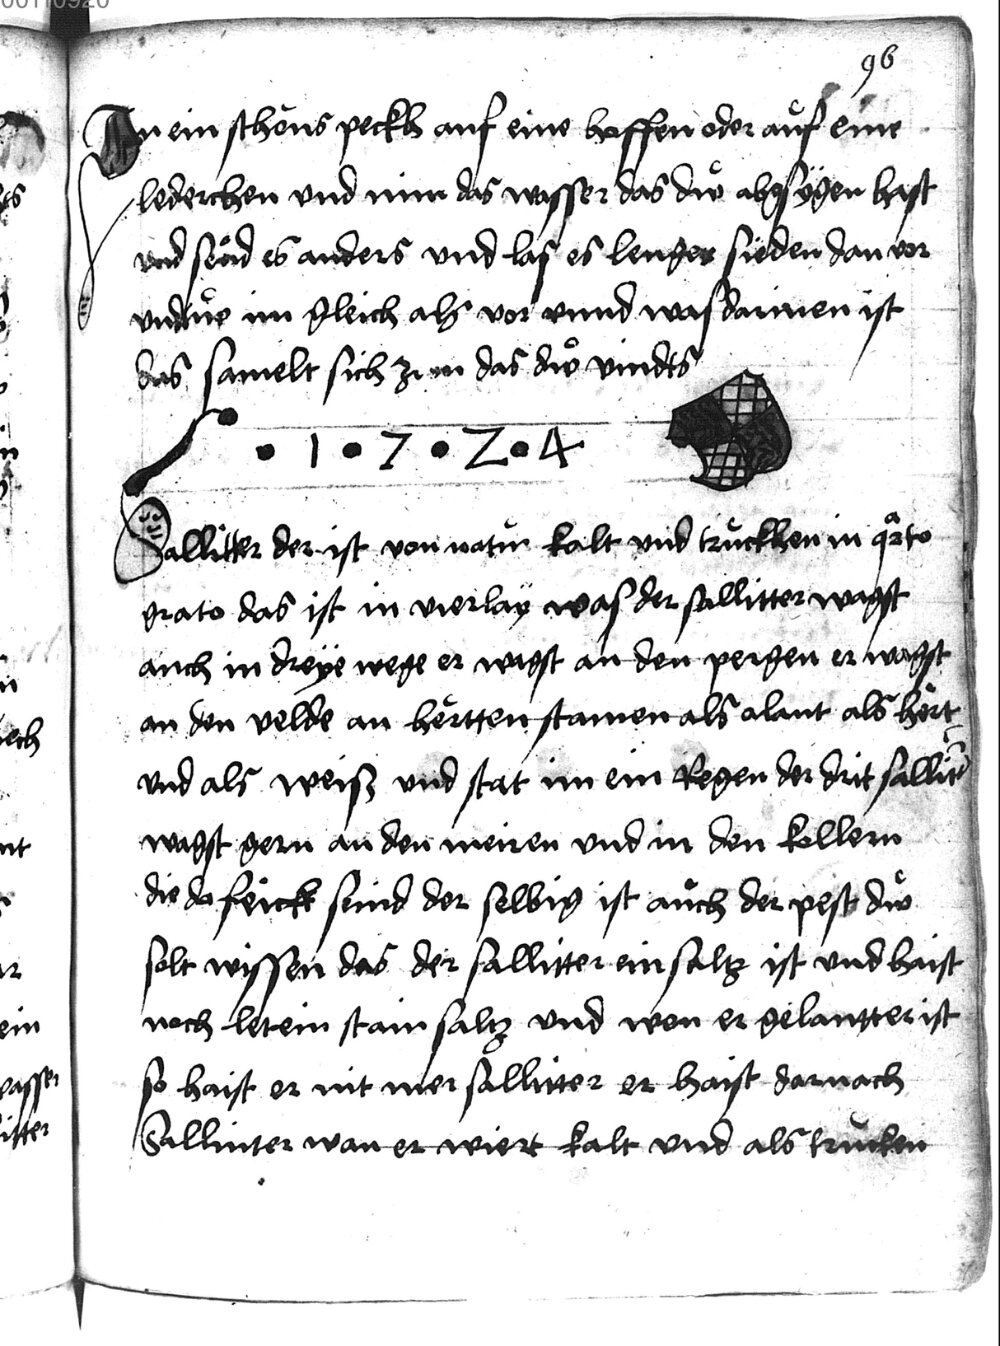 96
In ein schöns peckh auf eine hoffen oder auf eine
lederchen und nim das wasser das dẘ abgsÿgen hast
und seud es anders und las es lenger sieden dan vor
und tue im gleich als vor unnd was darinen ist
das samelt sich zum das dẘ vindts
• 1 • 7 • Z • 4
Sallitter der ist von natur kalt und truckhen in qrto
grato das ist in vierlaÿ was der sallitter wagst
auch in dreÿe wege er wagst an den pergen er wagst
an den velde an hertten stamen als alant als hert
und als weiß und stat im ein Regen der drit sallitter
wagst gern an den meiren und in den kellern
die do feickt seind der selbig ist auch der pest dẘ
solt wissen das der sallitter ein saltz ist und haist
noch letein stain saltz und wen er gelantter ist
so haist er nit mer sallitter er haist darnach
Sallinter wan er wiert kalt und als trucken